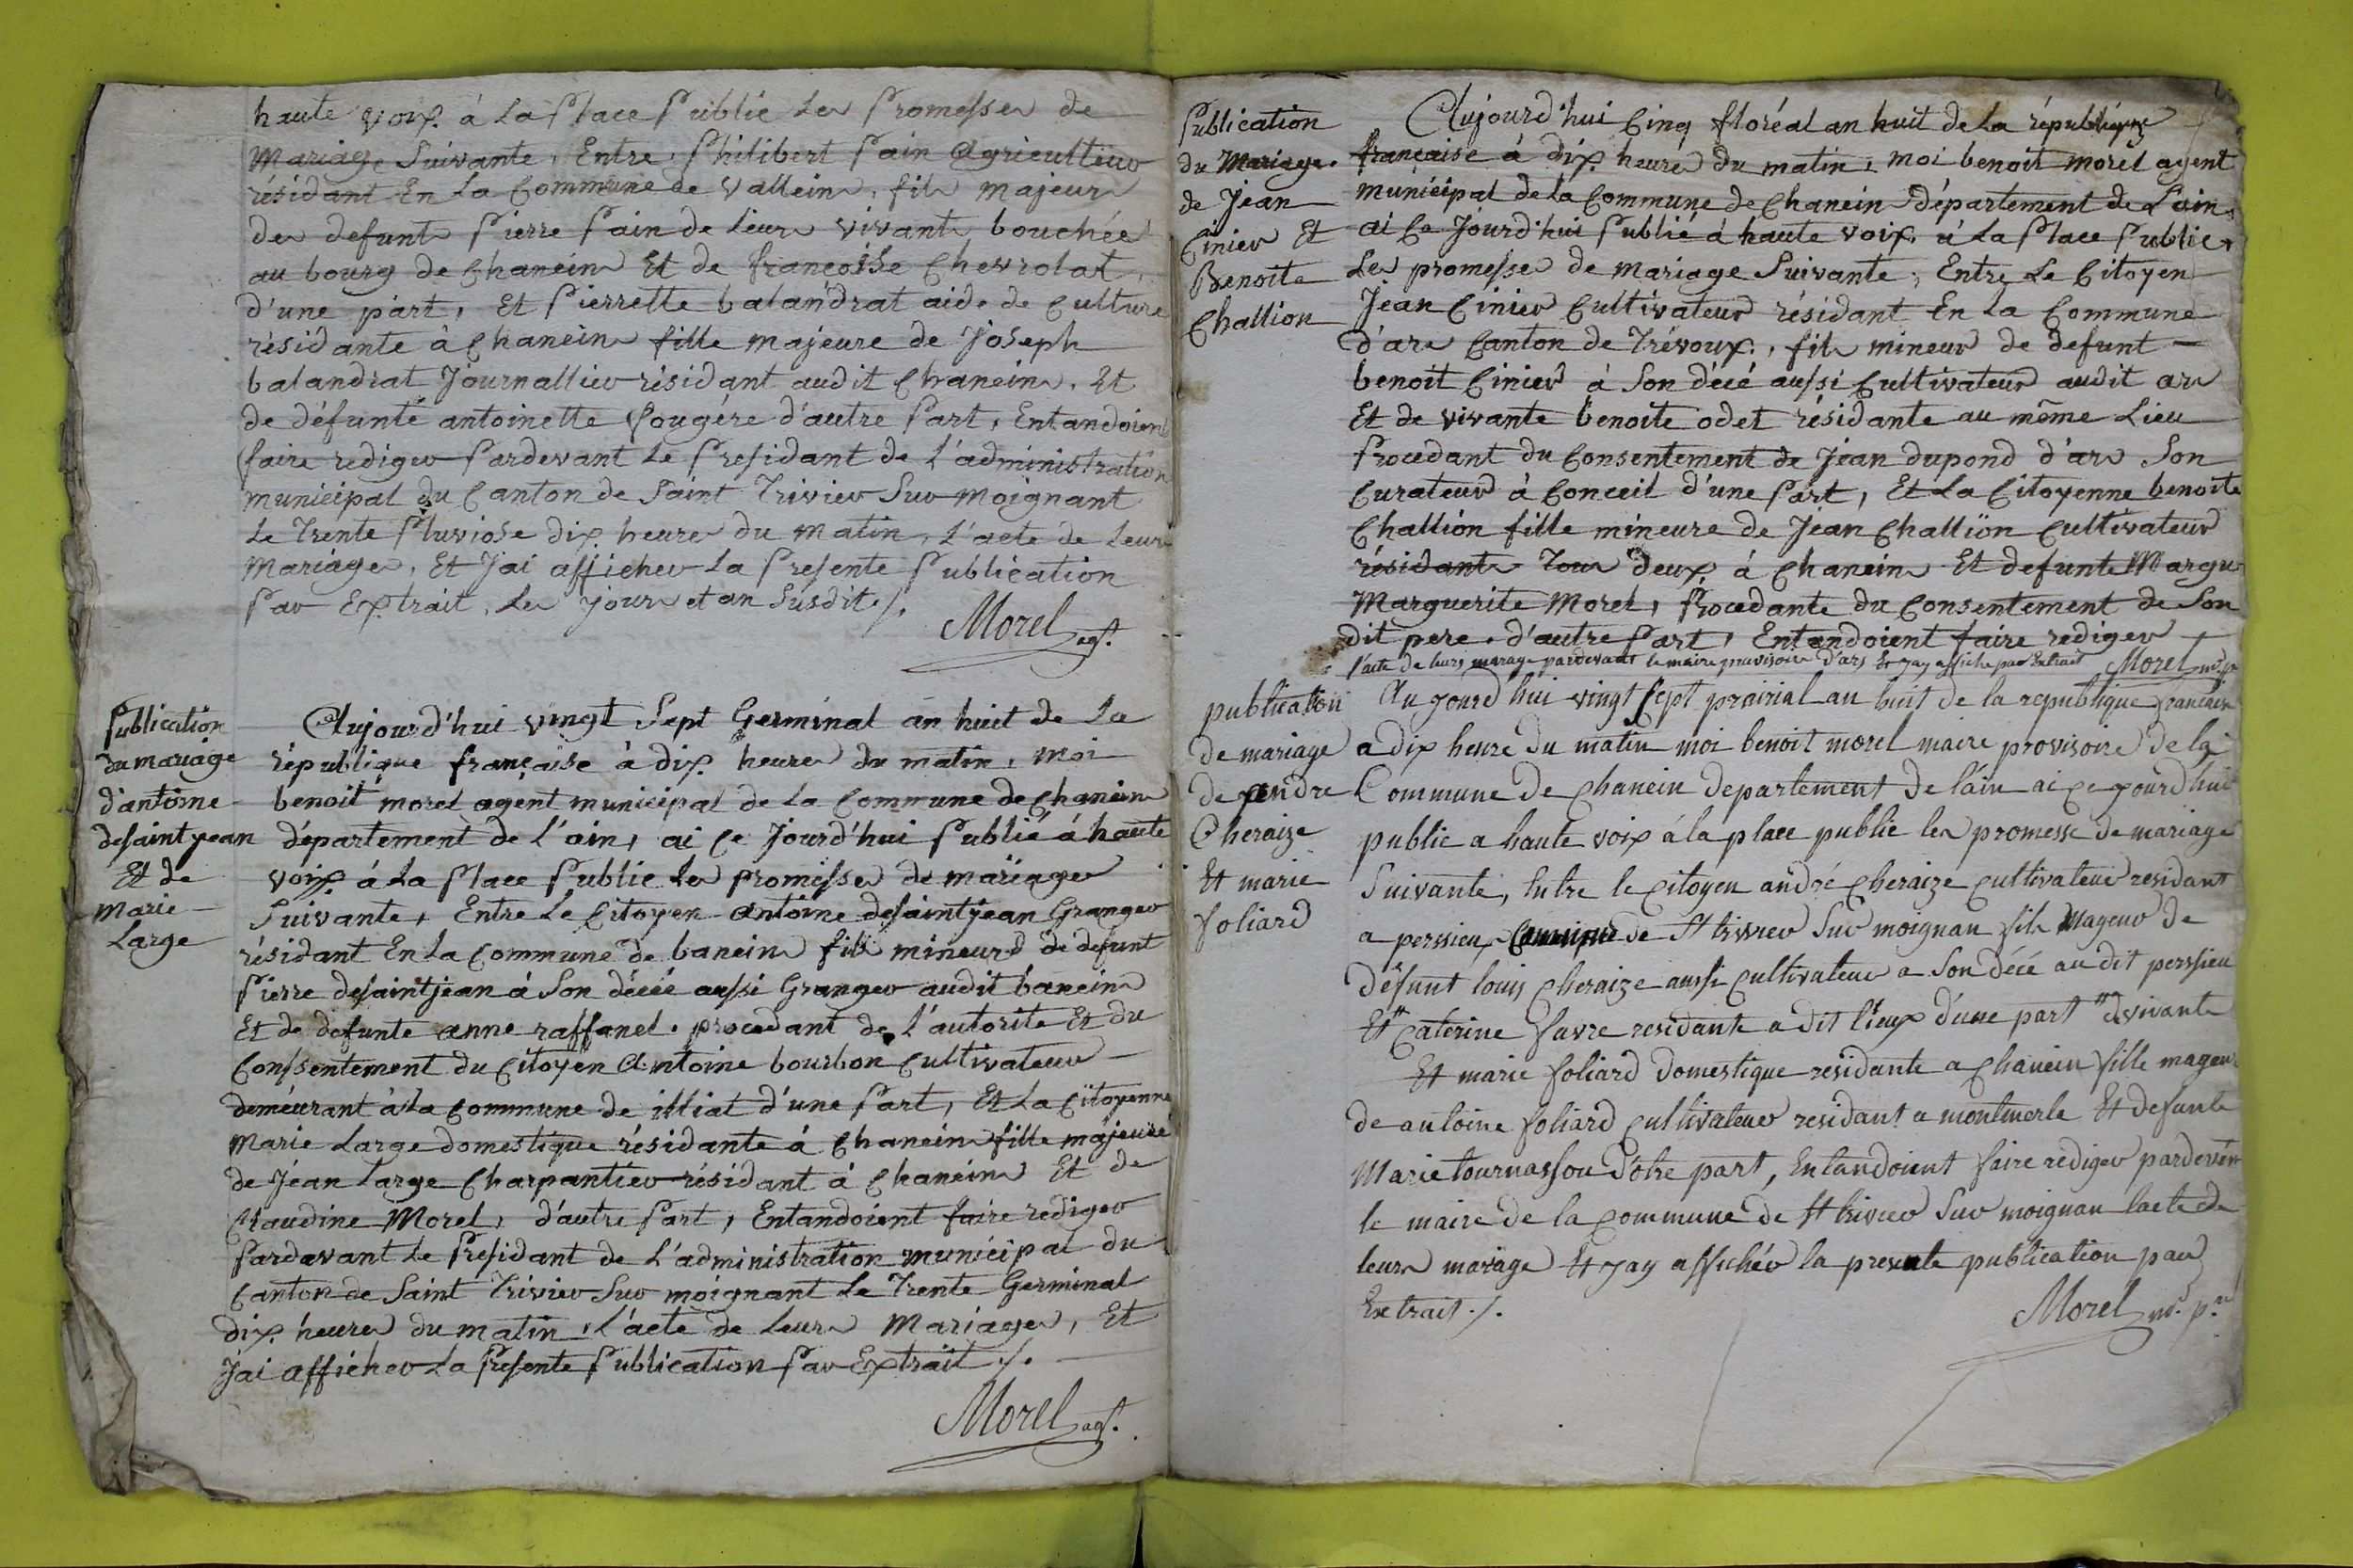 haute voix à la Place Public les Promesses de
Mariage Suivante, Entre Philibert Pain Agriculteur
résidant En la Commune de Valleins, fils majeur
des defunts Pierre Pain de leurs vivants bouchée
au bourg de Chaneins Et de françoise Chevrolat,
d'une part, Et Pierrette balandrat aide de Culture
résidante à Chaneins fille majeure de Joseph
balandrat Journallier résidant audit Chaneins, Et
de défunte antoinette fougére d'autre Part, Entandoient
faire rediger Pardevant le Presidant de l'administration
municipal du Canton de Saint Trivier Sur Moignant
le Trente Pluviose dix heures du matin, l'acte de leurs
Mariages, Et J'ai afficher la Presente Publication
Par Extrait, les jours et an Susdit ./.
Morel agt.
Publication
du mariage
d'antoine
desaintjean
Et de
Marie
Large
Aujourd'hui vingt Sept Germinal an huit de la
république française à dix heures du matin, Moi
benoit morel agent municipal de la Commune de Chaneins
département de l'ain, ai Ce Jourd'hui Publié à haute
voix à la Place Public les promesses de mariages
Suivante, Entre le Citoyen Antoine desaintjean Granger
résidant En la Commune de baneins fils mineur de defunt
Pierre desaintjean à Son décéé aussi Granger audit baneins
Et de defunte anne raffanel. procedant de l'autorite Et du
Conssentement du Citoyen Antoine bourbon Cultivateur
demeurant à la Commune de illiat d'une Part, Et La Citoyenne
Marie Large domestique résidante à Chaneins fille majeure
de Jéan Large Charpantier résidant à Chaneins Et de
Claudine Morel, d'autre Part, Entandoient faire rediger
Pardevant le Presidant de l'administration municipal du
Canton de Saint Trivier Sur moignant le Trente Germinal
dix heures du matin, l'acte de leurs Mariages, Et
J'ai afficher la Presente Publication Par Extrait ./.
Morel agt.
Publication
du Mariage
de Jean
Cinier Et
Benoite
Challion
Aujourd'hui Cinq floréal an huit de la république
française à dix heures du matin, moi benoit morel agent
municipal de la Commune de Chaneins département de l'ain,
ai Ce Jourd'hui Publié à haute voix, à la Place Public,
les promesses de mariage Suivante, Entre Le Citoyen
Jean Cinier Cultivateur résidant En la Commune
d'ars Canton de Trévoux, fils mineur de defunt
benoit Cinier à Son décé aussi Cultivateur audit ars
Et de vivante benoite odet résidante au même Lieu
Procedant du Consentement de Jean dupond d'ars Son
Curateur à Conceil d'une Part, Et La Citoyenne benoite
Challion fille mineure de Jean Challion Cultivateur
résidants Tous deux à Chaneins Et defunte Margu
Marguerite Morel, Procedante du Consentement de Son
dit pere. d'autre Part, Entandoient faire rediger
l'acte de leurs mariage pardevant le maire provisoire d'ars Et jay affiche par Extrait Morel
publication
de mariage
de andre
Cheraize
Et marie
foliard
Au jourd hui vingt sept prairial an huit de la republique francaise
a dix heure du matin moi benoit morel maire provisoire de la
Commune de Chanein departement de láin ai Ce jourd hui
public a haute voix á la place public les promesse de mariage
Suivante, Entre le Citoyen andré Cheraize Cultivateur residant
a perssieux Commune de St trivier Sur moignan fils Mageur de
défunt louis Cheraize aussi Cultivateur a Son décé au dit perssieu
Et " Caterine favre residante a dit lieux d'une part " de vivante
Et marie foliard domestique residante a Chanein fille mageu
de antoine foliard Cultivateur residant a montmerle Et defunte
Marie tournassou d'otre part, Entandoient faire rédiger pardevan
le maire de la Commune de St trivier Sur moignan lacte de
leurs mariage Et jay affichér la presente publication par
Extrait ./.
Morel m. pre